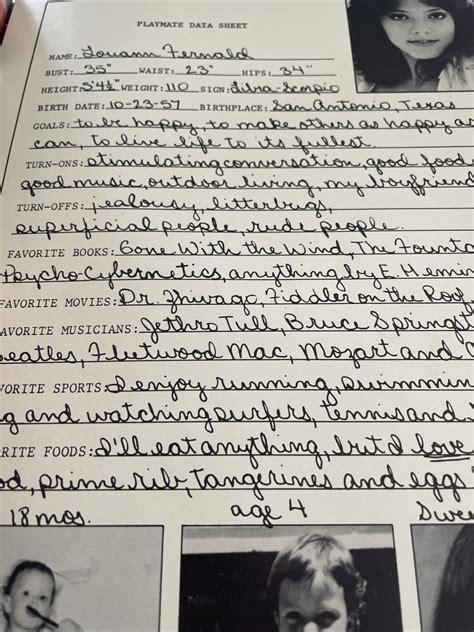 PLAYMATE DATA SHEET
NAME: Louann Fernald
BUST: 35" WAIST: 23" HIPS: 34"
HEIGHT: 5'4½" WEIGHT: 110 SIGN: Libra-Scorpio
BIRTH DATE: 10-23-57 BIRTHPLACE: San Antonio, Texas
GOALS: to be happy, to make others as happy as
can, to live life to its fullest.
TURN-ONS: stimulating conversation, good food
good music, outdoor living, my boyfriend
TURN-OFFS: jealousy, litterbugs,
superficial people, rude people.
FAVORITE BOOKS: Gone With the Wind, The
Psycho-Cybernetics, anything by E.
FAVORITE MOVIES: Dr. Zhivago, Fiddler on the Roof
AVORITE MUSICIANS: Jethro Tull, Bruce
eatles, Fleetwood Mac, Mozart and
VORITE SPORTS: I enjoy running,
g and watching surfers, tennis and
RITE FOODS: I'll eat anything, but I love
od, prime rib, tangerines and eggs
18 mos. age 4